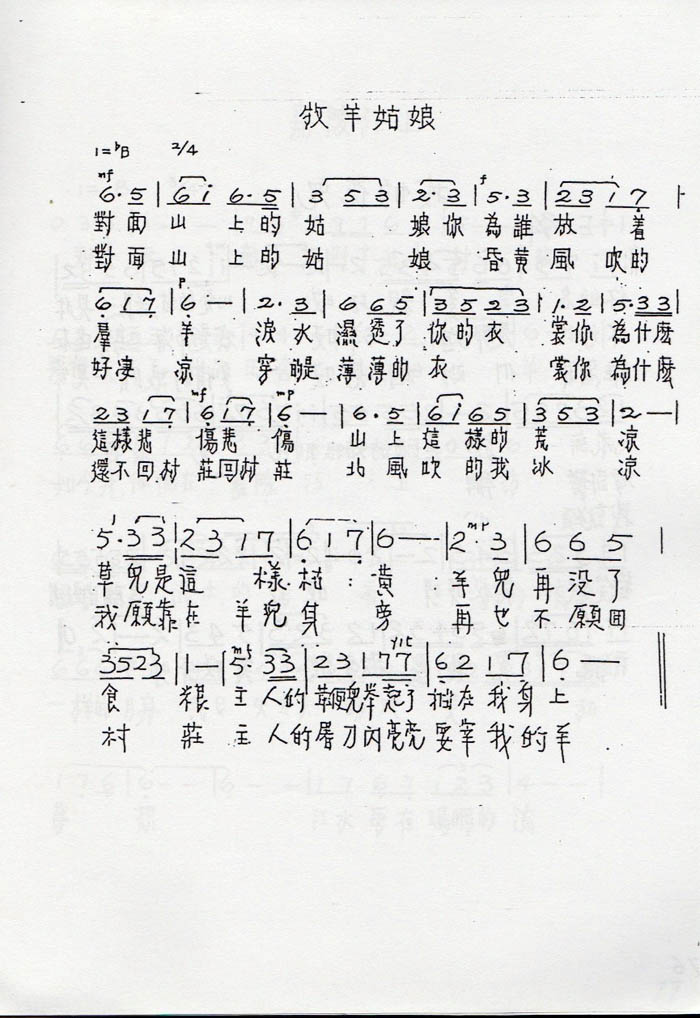 牧羊姑娘
1=♭B 2/4
mf f
6·5 | 6i 6·5 | 3 53 | 2·3 | 5·3 | 23 1 7 |
對面 山 上的 姑 娘你 為誰 放 着
對面 山 上的 姑 娘 昏黃 風 吹的
p
6 7 | 6 — | 2·3 | 6 65 | 3523 | 1·2 | 5·33 |
羣 羊 淚水 濕透了 你的衣 裳你 為什麽
好淒 涼 穿 薄薄的 衣 裳你 為什麽
mf mp
23 17 | 6 7 | 6 — | 6·5 | 6i 65 | 353 | 2 — |
這樣悲 傷悲 傷 山上 這 樣的 荒 涼
還不回村 莊回村 莊 北風 吹 的我 冰 涼
mp
5·33 | 23 17 | 6 17 | 6 — — | 2·3 | 6 6 5 |
草兒是這 樣 枯 黃 羊兒再 没了
我願靠在 羊兒 身 旁 再也不願回
3523 | 1 — | 5·33 | 23 77 | 62 17 | 6 — — ‖
食 糧 主 人的 舉 了 在我身上
村 莊 主 人的屠刀 亮亮 要宰我的羊